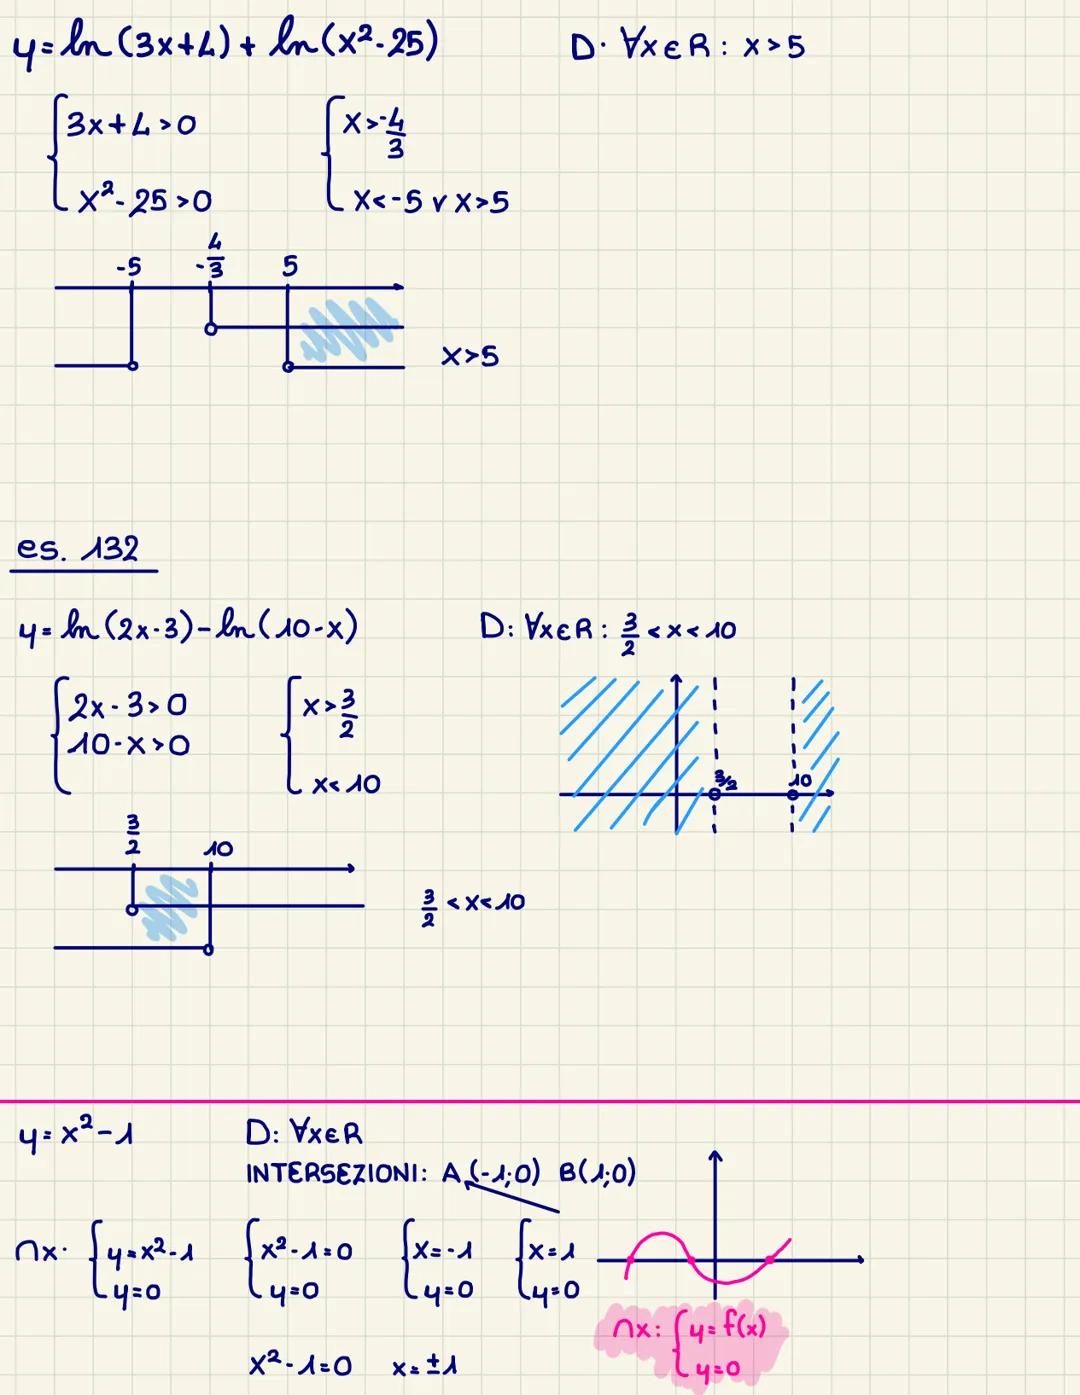 y = ln (3x+4) + ln (x²-25)   D: ∀x∈R : x > 5
{ 3x+4 > 0   { x > -4/3
{ x²-25 > 0   { x < -5 ∨ x > 5
-5   -4/3   5
x > 5
es. 132
y = ln (2x-3) - ln (10-x)   D: ∀x∈R : 3/2 < x < 10
{ 2x-3 > 0   { x > 3/2
{ 10-x > 0   { x < 10
3/2   10
3/2   10
3/2 < x < 10
y = x²-1   D: ∀x∈R
INTERSEZIONI: A (-1;0)  B (1;0)
∩x: { y = x²-1   { x²-1 = 0   { x = -1   { x = 1
{ y = 0   { y = 0   { y = 0   { y = 0
∩x: { y = f(x)
{ y = 0
x²-1 = 0   x = ±1